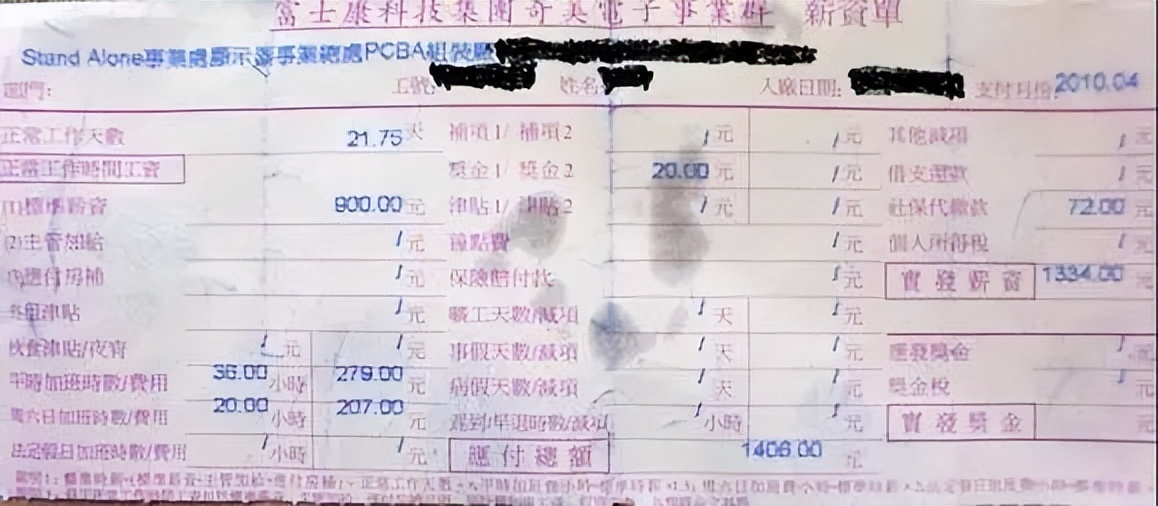 富士康科技集團奇美電子事業群 薪資單
Stand Alone事業處顯示器事業總處PCBA組裝區
部門: 工號: 姓名: 入廠日期: 支付月份: 2010.04
正常工作天數 21.75 天 補項1/補項2 / 元 / 元 其他減項 / 元
正常工作時間工資 獎金1/獎金2 20.00 元 / 元 借支還款 / 元
(1)標準薪資 900.00 元 津貼1/津貼2 / 元 / 元 社保代繳款 72.00 元
(2)主管加給 / 元 誤點費 / 元 個人所得稅 / 元
(3)應付房補 / 元 保險賠付款 / 元 實發薪資 1334.00 元
津貼 / 元 曠工天數/減項 / 天 / 元
伙食津貼/夜宵 / 元 / 元 事假天數/減項 / 天 / 元 應發獎金 / 元
平時加班時數/費用 36.00 小時 279.00 元 病假天數/減項 / 天 / 元 獎金稅 / 元
周六日加班時數/費用 20.00 小時 207.00 元 遲到/早退時數/減項 / 小時 / 元 實發獎金 元
法定假日加班時數/費用 / 小時 / 元 應付總額 1406.00 元